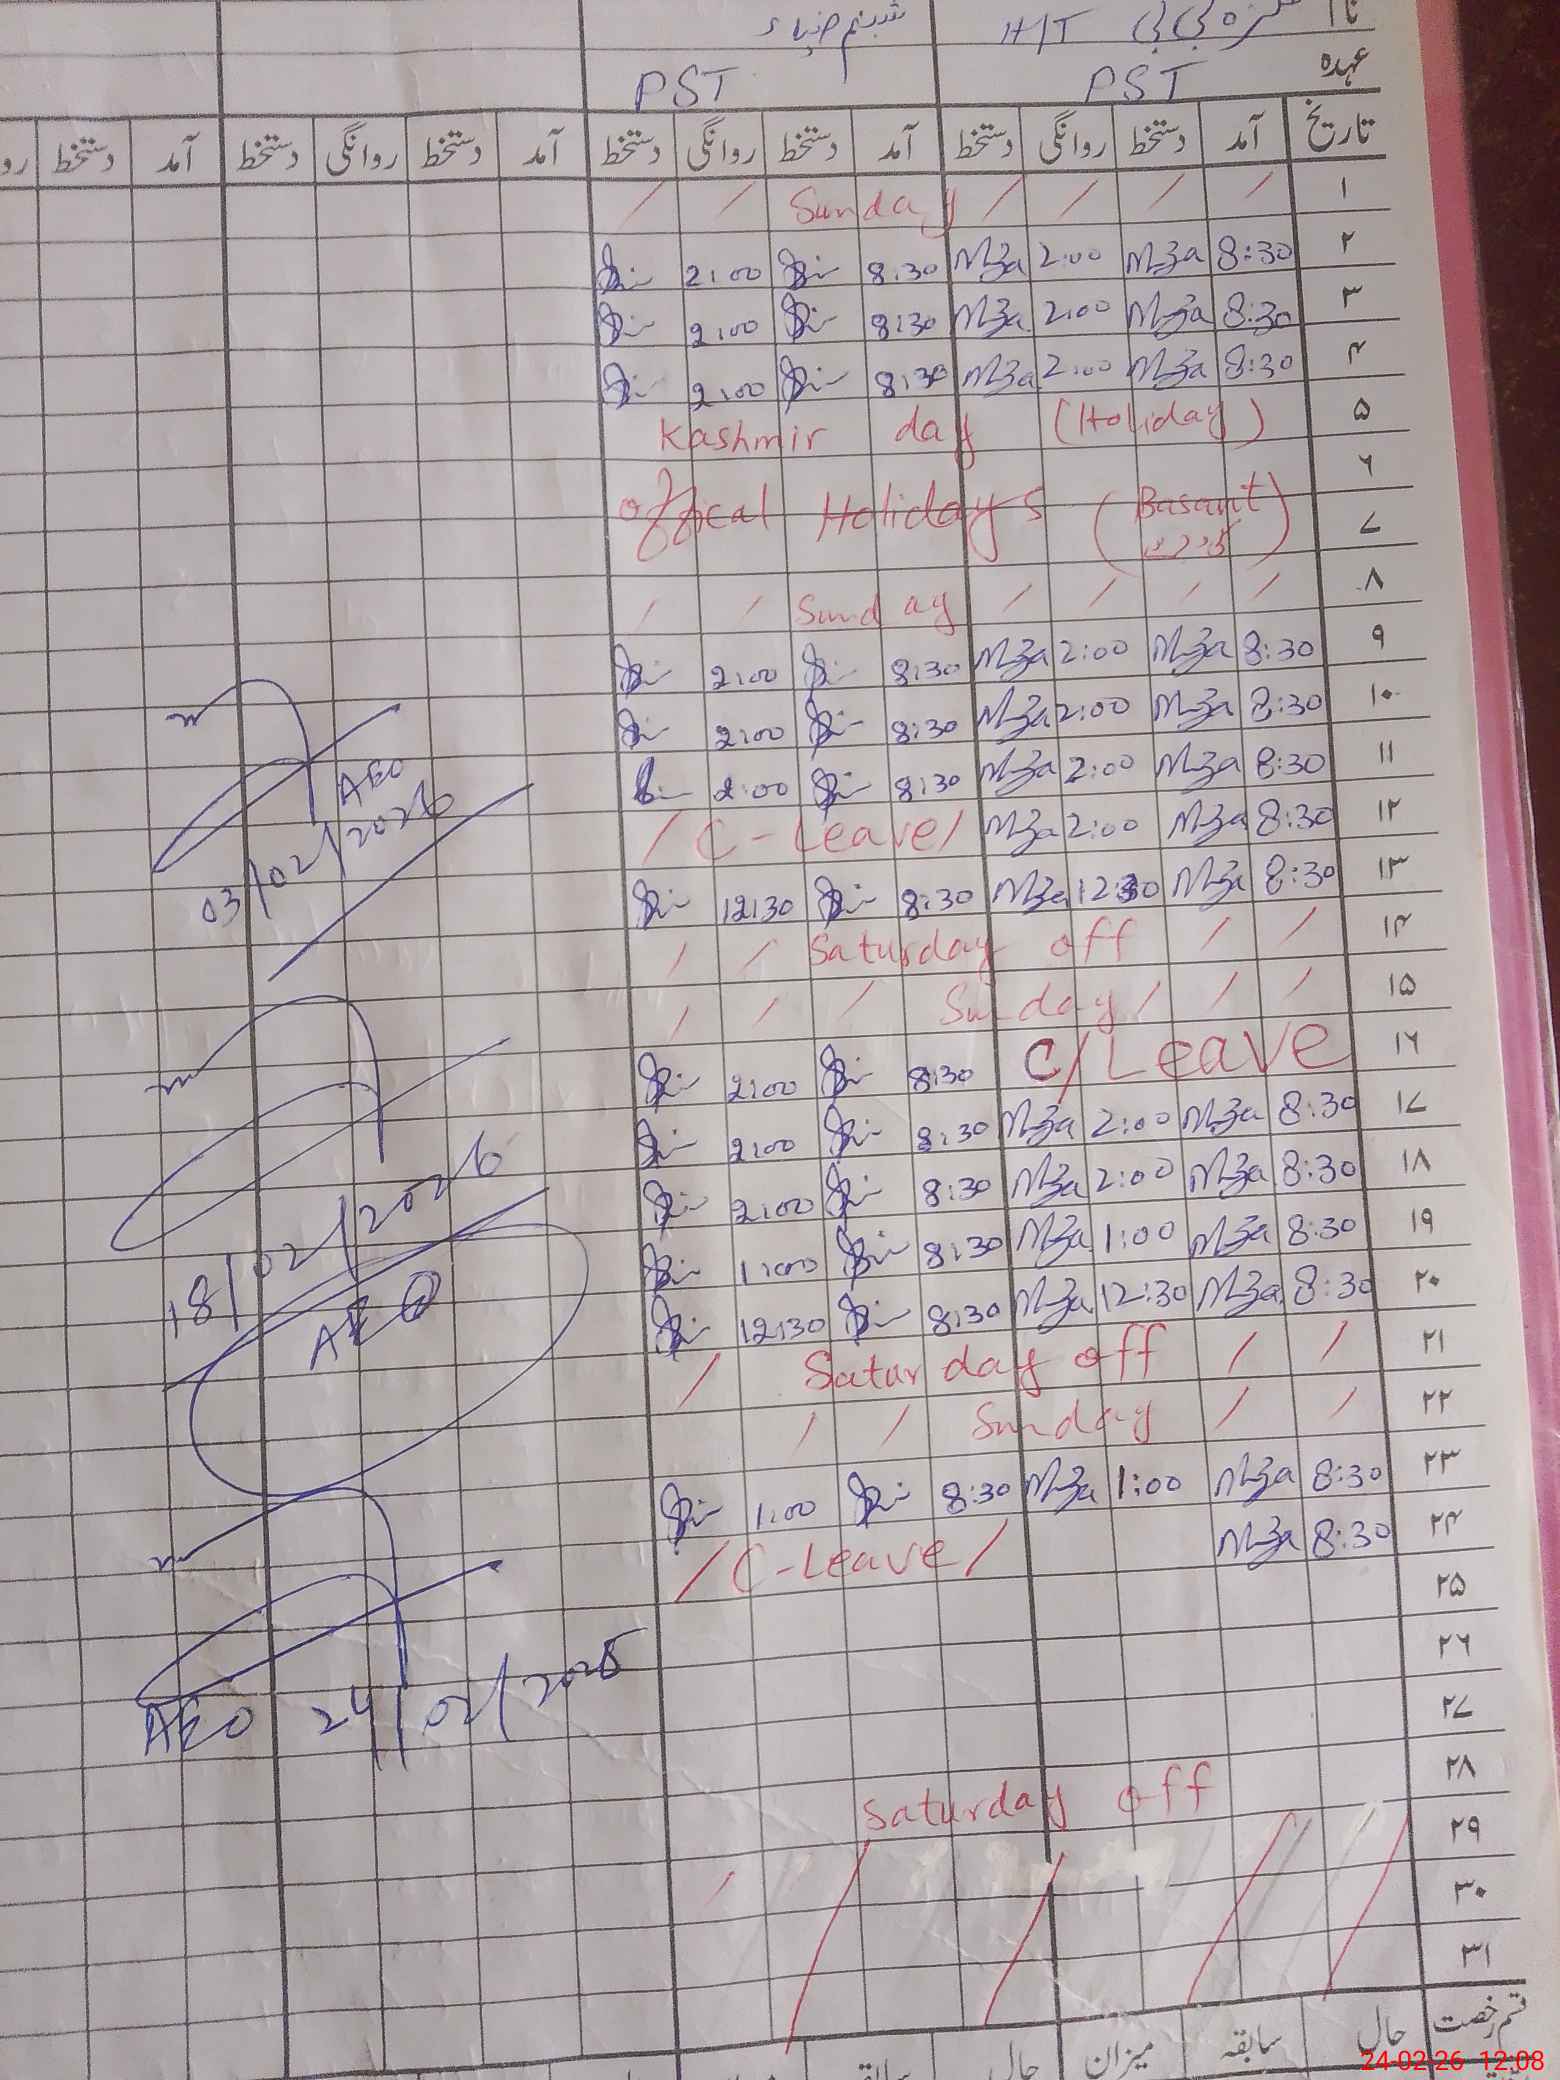 نام
بی بی H/T شبنم ضیاء
عہدہ PST PST
تاریخ آمد دستخط روانگی دستخط آمد دستخط روانگی دستخط آمد دستخط روانگی دستخط آمد دستخط رو
۱ / / / / Sunday / /
۲ 8:30 Mza 2:00 Mza 8:30 2:00
۳ 8:30 Mza 2:00 Mza 8:30 2:00
۴ 8:30 Mza 2:00 Mza 8:30 2:00
۵ Kashmir day (Holiday)
۶
۷ offical Holidays (Basant
۸ / / / / Sunday / /
۹ 8:30 Mza 2:00 Mza 8:30 2:00
۱۰ 8:30 Mza 2:00 Mza 8:30 2:00
۱۱ 8:30 Mza 2:00 Mza 8:30 2:00
۱۲ 8:30 Mza 2:00 Mza /C-Leave/
۱۳ 8:30 Mza 12:30 Mza 8:30 12:30
۱۴ / / Saturday off / /
۱۵ / / / Sunday / / /
۱۶ C/Leave 8:30 2:00
۱۷ 8:30 Mza 2:00 Mza 8:30 2:00
۱۸ 8:30 Mza 2:00 Mza 8:30 2:00
۱۹ 8:30 Mza 1:00 Mza 8:30 1:00
۲۰ 8:30 Mza 12:30 Mza 8:30 12:30
۲۱ / / Saturday off /
۲۲ / / Sunday / /
۲۳ 8:30 Mza 1:00 Mza 8:30 1:00
۲۴ 8:30 Mza /C-Leave/
۲۵
۲۶
۲۷
۲۸ Saturday off
۲۹
۳۰
۳۱
قسم رخصت حال سابقہ میزان حال سابقہ
AEO
03/02/2026
18/02/2026
AEO
AEO 24/02/2026
24-02-26 12:08